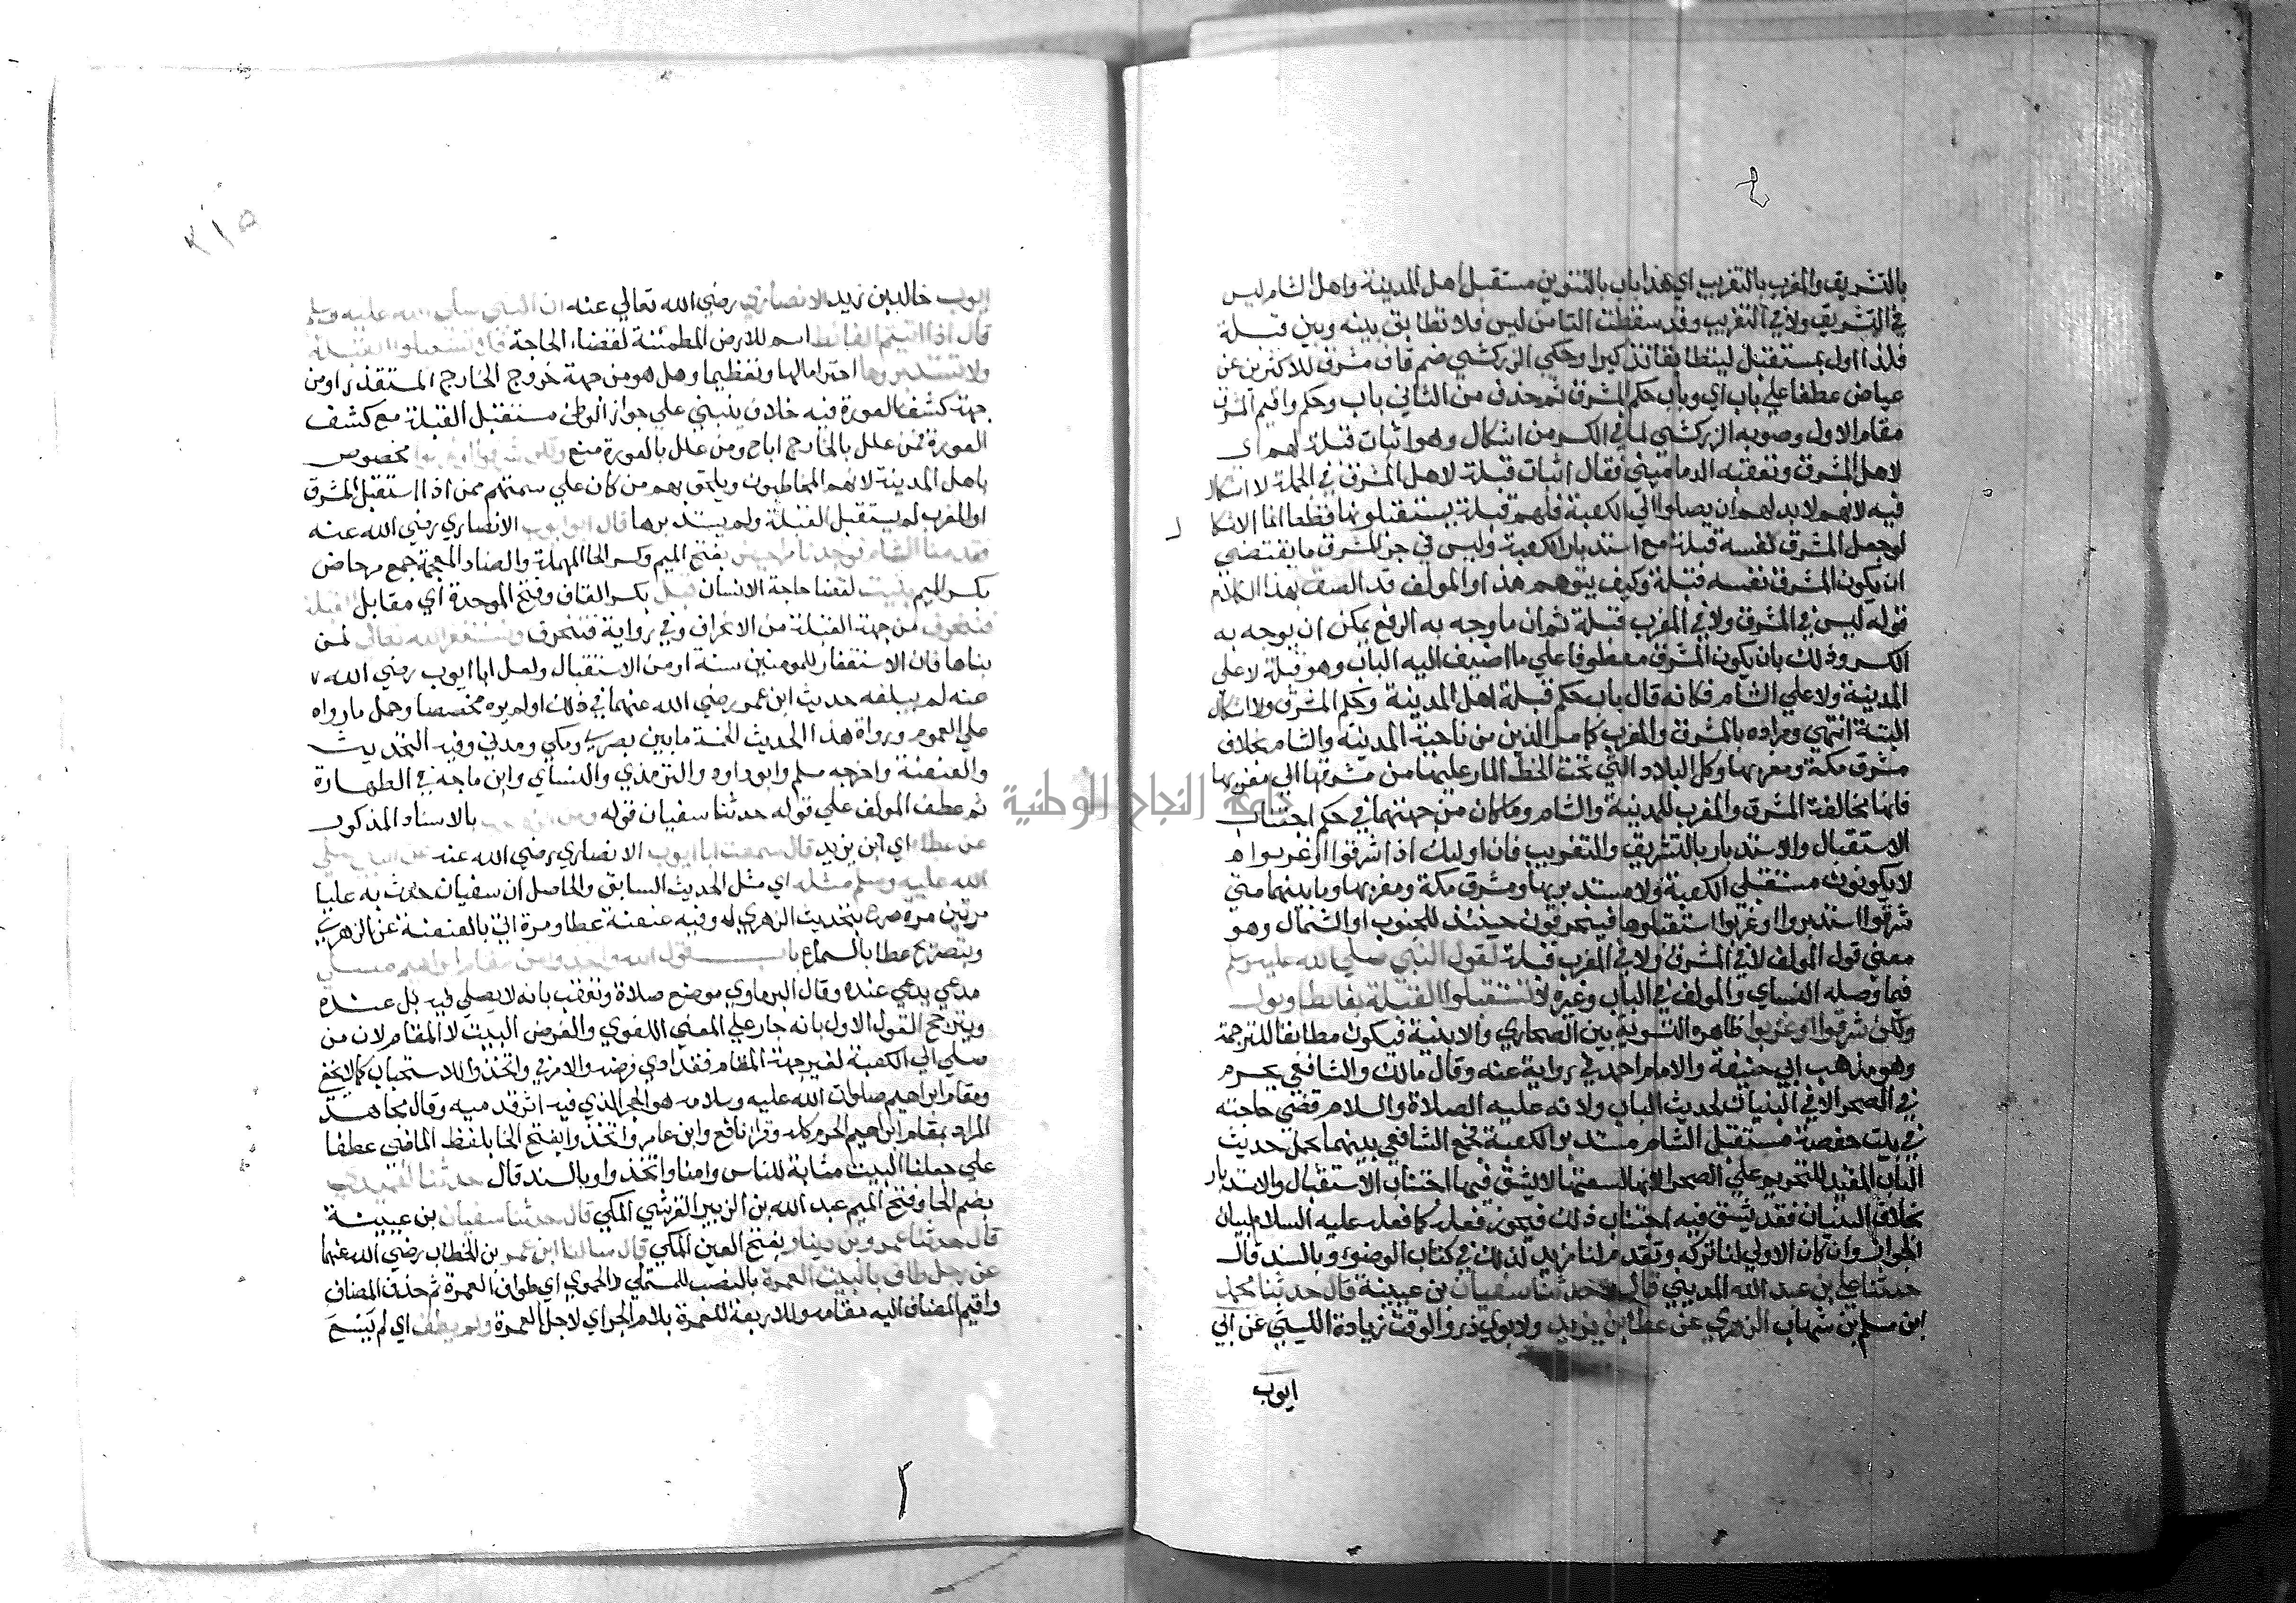 بالتشريق والمغرب بالتغريب اي هذا باب بالتنوين مستقبل اهل المدينة واهل الشام ليس
في التشريق ولا في التغريب وقد سقطت التا من ليس فلا تطابق بينه وبين قبلة
فلذا اول بمستقبل ليتطابقا تذكيرا وحكي الزركشي ضم قاف مشرق للاكثرين عن
عياض عطفا علي باب اي وباب حكم المشرق ثم حذف من الثاني باب وحكم واقيم المشرق
مقام الاول وصوبه الزركشي لما في الكسر من اشكال وهو اثبات قبلة لهم اى
لاهل المشرق وتعقبه الدماميني فقال اثبات قبلة لاهل المشرق في الجملة لا اشكال
فيه لانهم لا بد لهم ان يصلوا الي الكعبة فلهم قبلة يستقبلونها قطعا انما الاشكا
ل
لو جعل المشرق نفسه قبلة مع استدبار الكعبة وليس في جر المشرق ما يقتضي
ان يكون المشرق نفسه قبلة وكيف يتوهم هذا والمولف قد الصق بهذا الكلام
قوله ليس في المشرق ولا في المغرب قبلة ثم ان ما وجه به الرفع يمكن ان يوجه به
الكسر وذلك بان يكون المشرق معطوفا علي ما اضيف اليه الباب وهو قبلة لا على
المدينة ولا علي الشام فكانه قال باب حكم قبلة اهل المدينة وحكم المشرق ولا اشكال
البتة انتهي ومراده بالمشرق والمغرب كما مر الذين من ناحية المدينة والشام بخلاف
مشرق مكة ومغربها وكل البلاد التي تحت الخط المار عليها من مشرقها الي مغربها
فانها مخالفة المشرق والمغرب للمدينة والشام وما كان من جهتهما في حكم اجتناب
الاستقبال والاستدبار بالتشريق والتغريب فان اوليك اذا شرقوا او غربوا
لا يكونون مستقبلي الكعبة ولا مستدبريها ومشرق مكة ومغربها وما بينهما متي
شرقوا استدبروا او غربوا استقبلوها فينحرفون حينئذ للجنوب او الشمال وهو
معني قول المولف لا في المشرق ولا في المغرب قبلة لقول النبي صلي الله عليه وسلم
فيما وصله النساي والمولف في الباب وغيره لا تستقبلوا القبلة بغايط او بول
ولكن شرقوا او غربوا ظاهره التسوية بين الصحاري والابنية فيكون مطابقا للترجمة
وهو مذهب ابي حنيفة والامام احمد في رواية عنه وقال مالك والشافعي يحرم
في الصحرا لا في البنيان لحديث الباب ولانه عليه الصلاة والسلام قضي حاجته
في بيت حفصة مستقبل الشام مستدبر الكعبة فجمع الشافعي بينهما بحمل حديث
الباب المفيد للتحريم علي الصحرا لانها لسعتها لا يشق فيها اجتناب الاستقبال والاستدبار
بخلاف البنيان فقد يشق فيه اجتناب ذلك فيجوز فعله كما فعله عليه السلام لبيان
الجواز وان كان الاولي لنا تركه وتقدم لنا مزيد لذلك في كتاب الوضوء وبالسند قال
حدثنا علي بن عبد الله المديني قال حدثنا سفيان بن عيينة قال حدثنا محمد
ابن مسلم بن شهاب الزهري عن عطا بن يزيد ولابوي ذر والوقت زيادة الليثي عن ابي
ايوب
ايوب خالد بن زيد الانصاري رضي الله تعالي عنه ان النبي صلى الله عليه وسلم
قال اذا اتيتم الغائط اسم للارض المطمئنة لقضاء الحاجة فلا تستقبلوا القبلة
ولا تستدبروها احتراما لها وتعظيما وهل هو من جهة خروج الخارج المستقذر او من
جهة كشف العورة فيه خلاف ينبني علي جواز الوطئ مستقبل القبلة مع كشف
العورة فمن علل بالخارج اباح ومن علل بالعورة منع ولكن شرقوا او غربوا مخصوص
باهل المدينة لانهم المخاطبون ويلحق بهم من كان علي سمتهم ممن اذا استقبل المشرق
او المغرب لم يستقبل القبلة ولم يستدبرها قال ابو ايوب الانصاري رضي الله عنه
فقدمنا الشام فوجدنا مراحيض بفتح الميم وكسر الحا المهملة والضاد المعجمة جمع مرحاض
بكسر الميم بنيت لقضا حاجة الانسان قبل بكسر القاف وفتح الموحدة اي مقابل القبلة
فننحرف من جهة القبلة من الانحراف وفي رواية فنتحرف ونستغفر الله تعالى لمن
بناها فان الاستغفار للمومنين سنة او من الاستقبال ولعل ابا ايوب رضي الله
عنه لم يبلغه حديث ابن عمر رضي الله عنهما في ذلك او لم يره مخصصا وحمل ما رواه
علي العموم ورواة هذا الحديث الخمسة ما بين بصري ومكي ومدني وفيه التحديث
والعنعنة واخرجه مسلم وابو داود والترمذي والنساي وابن ماجه في الطهارة
ثم عطف المولف علي قوله حدثنا سفيان قوله وعن الزهري بالاسناد المذكور
عن عطاء اي ابن يزيد قال سمعت ابا ايوب الانصاري رضي الله عنه عن النبي صلي
الله عليه وسلم مثله اي مثل الحديث السابق والحاصل ان سفيان حدث به عليا
مرتين مرة صرح بتحديث الزهري له وفيه عنعنة عطا ومرة اتي بالعنعنة عن الزهري
وبتصريح عطا بالسماع باب قول الله واتخذوا من مقام ابراهيم مصلي
مدعي يدعي عنده وقال البرماوي موضع صلاة وتعقب بانه لا يصلي فيه بل عنده
ويترجح القول الاول بانه جار علي المعني اللغوي والغرض البيت لا المقام لان من
صلي الي الكعبة لغير جهة المقام فقد ادي فرضه والامر في واتخذوا للاستحباب كما لا يخفي
ومقام ابراهيم صلوات الله عليه وسلامه هو الحجر الذي فيه اثر قدميه وقال مجاهد
المراد بمقام ابراهيم الحرم كله وقرا نافع وابن عامر واتخذوا بفتح الخا بلفظ الماضي عطفا
علي جعلنا البيت مثابة للناس وامنا واتخذوا وبالسند قال حدثنا الحميدي
بضم الحا وفتح الميم عبد الله بن الزبير القرشي المكي قال حدثنا سفيان بن عيينة
قال حدثنا عمرو بن دينار بفتح العين المكي قال سالنا ابن عمر بن الخطاب رضي الله عنهما
عن رجل طاف بالبيت العمرة بالنصب للمستملي والحموي اي طواف العمرة ثم حذف المضاف
واقيم المضاف اليه مقامه وللاربعة للعمرة بلام الجر اي لاجل العمرة ولم يطف اي لم يسع
جامعة النجاح الوطنية